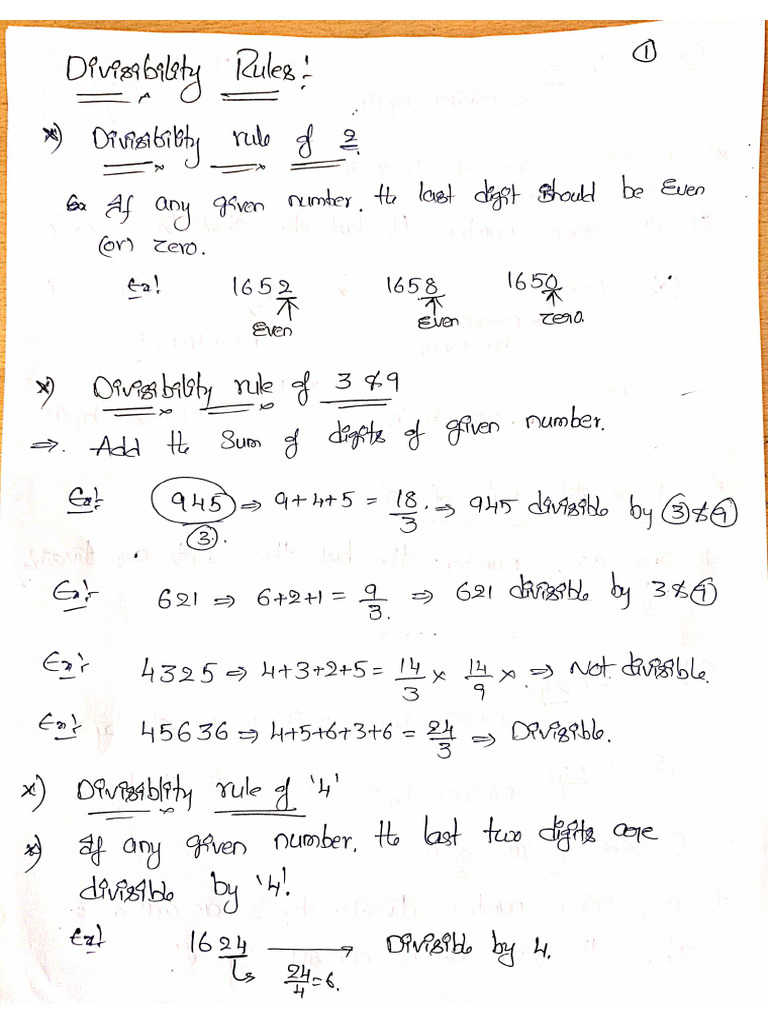 ①
Divisibility Rules:-
*) Divisibility rule of 2
If any given number, the last digit should be Even
(or) zero.
Ex:- 1652 1658 1650
Even Even zero.
*) Divisibility rule of 3 & 9
⇒. Add the sum of digits of given number.
Ex:- 945 ⇒ 9+4+5 = 18/3. ⇒ 945 divisible by ③ & ⑨
③.
Ex:- 621 ⇒ 6+2+1 = 9/3. ⇒ 621 divisible by 3 & ⑨
Ex:- 4325 ⇒ 4+3+2+5 = 14/3 × 14/9 × ⇒ Not divisible.
Ex:- 45636 ⇒ 4+5+6+3+6 = 24/3 ⇒ Divisible.
*) Divisiblity rule of '4'
*) If any given number, the last two digits are
divisible by '4'.
Ex:- 1624 → Divisible by 4.
24/4 = 6.